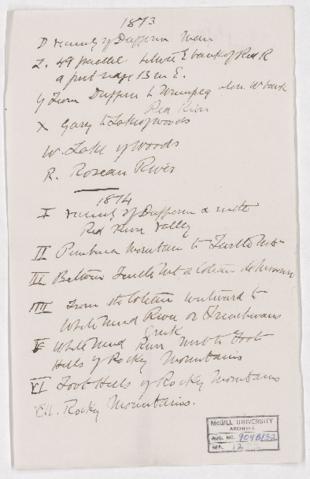 1873
D vicinity of Dufferin Man
Z. 49 parallel between E bank of Red R
a first range 13 m E.
Y From Dufferin to Winnipeg W bank
Red River
X Garry to Lake of woods
W. Lake of woods
R. Roseau River
1874
I vicinity of Dufferin
Red River Valley
II Pembina Mountain to Turtle Mt
III Between Turtle Mt & Coteau de Missouri
IIII From the Coteau westward to
White Mud River or Frenchmans
Creek
V White Mud River to Foot
Hills of Rocky Mountains
VI Foot Hills of Rocky Mountains
VII. Rocky Mountains.
McGILL UNIVERSITY
ARCHIVES
ACC. NO.
REF. 12